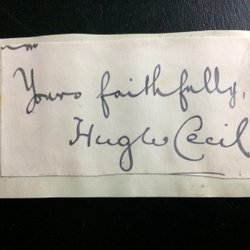 Yours faithfully,
Hugh Cecil